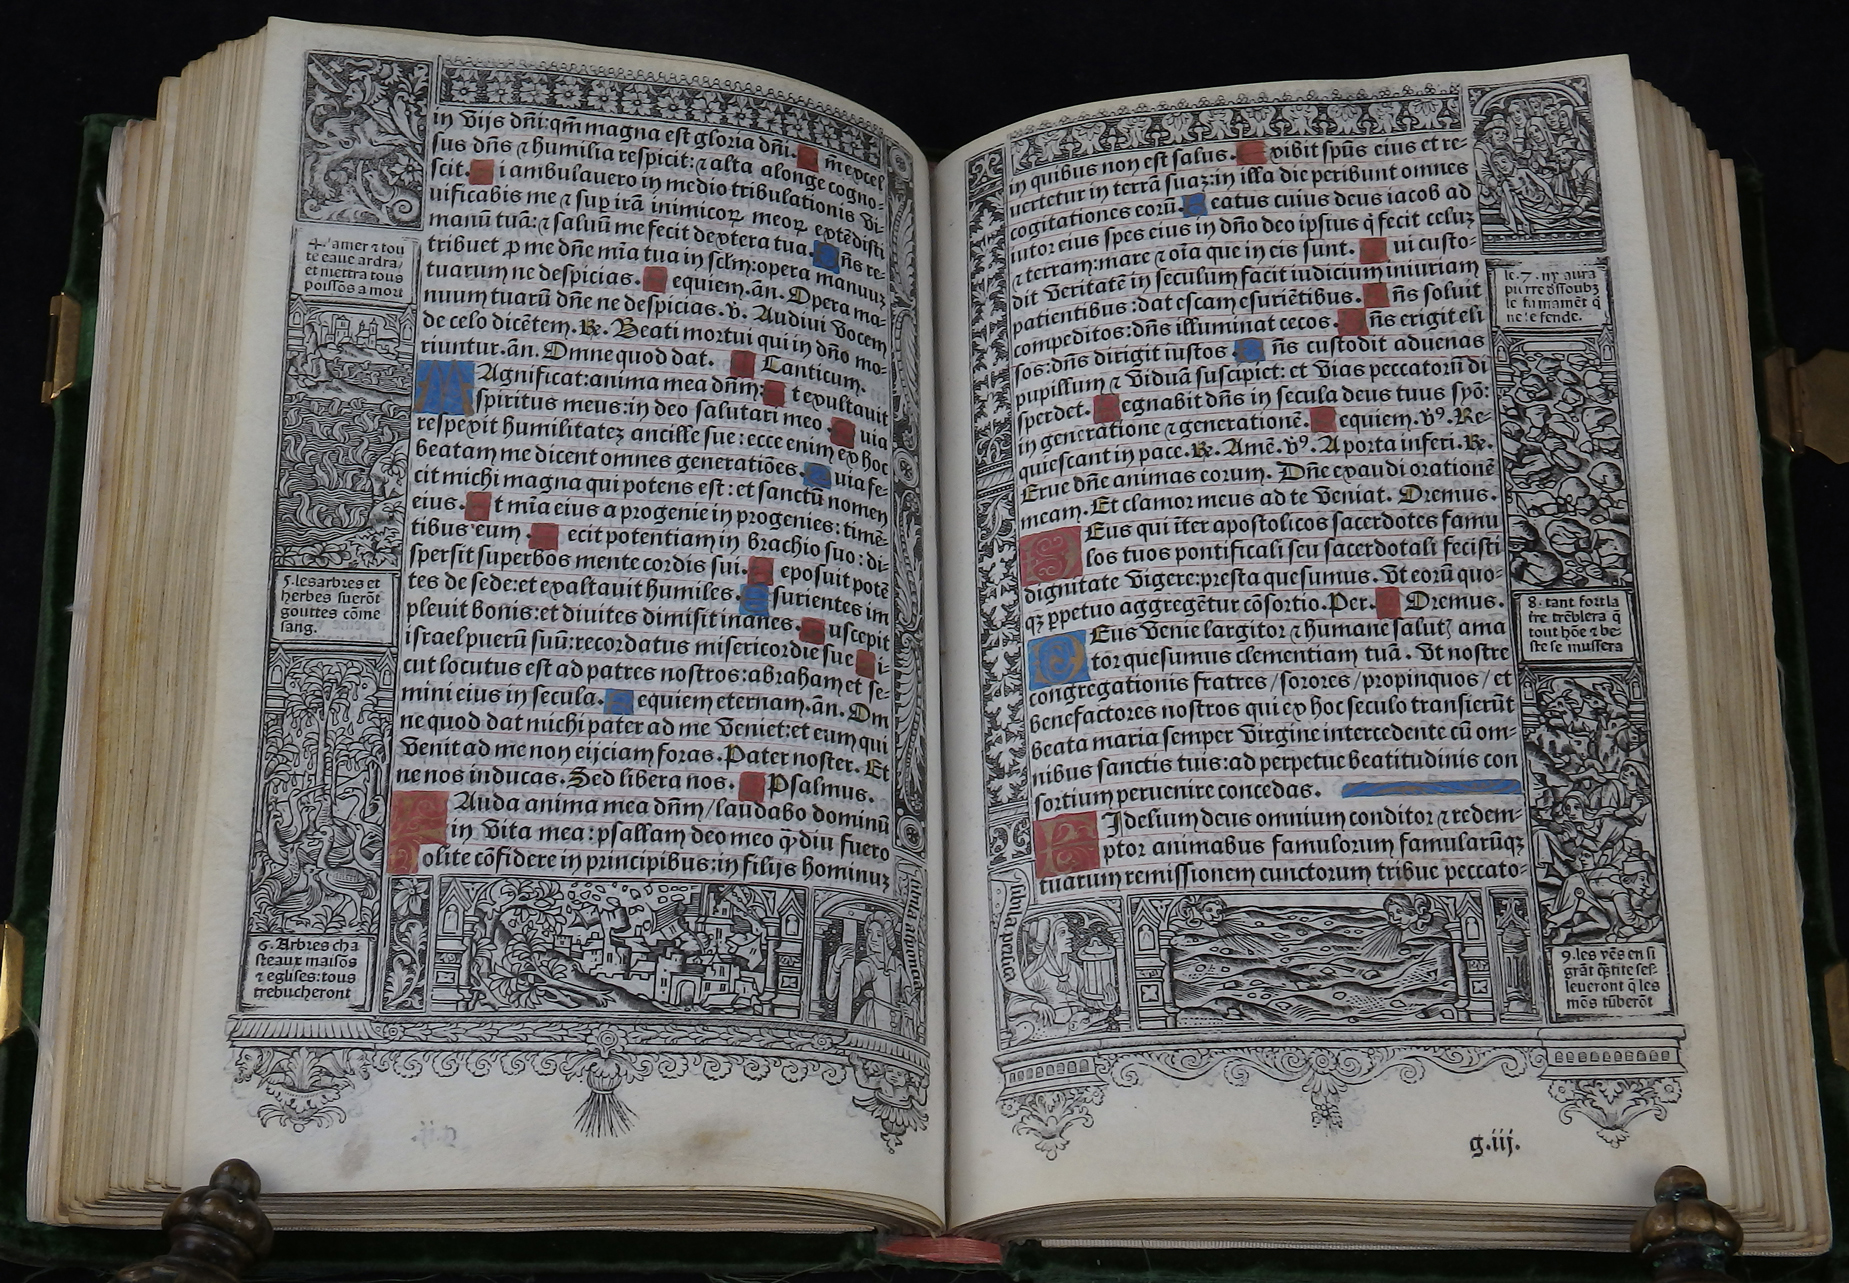 in vijs dñi: qm̃ magna est gloria dñi. m excel
sus dñs ⁊ humilia respicit: ⁊ alta a longe cogno-
scit. i ambulauero in medio tribulationis vi-
uificabis me ⁊ sup irã inimicoꝝ meoꝝ extẽdisti
manũ tuã: ⁊ saluũ me fecit dextera tua. ñs re-
tribuet ꝓ me dñe mĩa tua in sclm̃: opera manuuꝫ
tuarum ne despicias. equiem. añ. Opera ma-
nuum tuarũ dñe ne despicias. v. Audiui vocem
de celo dicẽtem. ℟. Beati mortui qui in dño mo-
riuntur. añ. Omne quod dat. Canticum.
MAgnificat: anima mea dñm: t exultauit
spiritus meus: in deo salutari meo. uia
respexit humilitateꝫ ancille sue: ecce enim ex hoc
beatam me dicent omnes generatiões. uia fe-
cit michi magna qui potens est: et sanctũ nomen
eius. t mĩa eius a progenie in progenies: timẽ-
tibus eum. ecit potentiam in brachio suo: di-
spersit superbos mente cordis sui. eposuit potẽ
tes de sede: et exaltauit humiles. surientes im
pleuit bonis: et diuites dimisit inanes. uscepit
israel puerũ suũ: recordatus misericordie sue i-
cut locutus est ad patres nostros: abraham et se-
mini eius in secula. equiem eternam. añ. Om
ne quod dat michi pater ad me veniet: et eum qui
venit ad me non eijciam foras. Pater noster. Et
ne nos inducas. Sed libera nos. Psalmus.
LAuda anima mea dñm / laudabo dominũ
in vita mea: psallam deo meo q̃diu fuero
olite cõfidere in principibus: in filijs hominuꝫ
+ la mer ⁊ tou
te eaue ardra/
et mettra tous
poissõs a mort
5. les arbres et
herbes suerõt
gouttes cõme
sang.
6. Arbres cha
steaux maisõs
⁊ eglises: tous
trebucheront
in quibus non est salus. xibit spũs eius et re-
uertetur in terrã suaꝫ: in illa die peribunt omnes
cogitationes eorũ. eatus cuius deus iacob ad
iutor eius spes eius in dño deo ipsius q̇ fecit celuꝫ
⁊ terram: mare ⁊ oĩa que in eis sunt. ui custo-
dit veritatẽ in seculum facit iudicium iniuriam
patientibus: dat escam esuriẽtibus. ñs soluit
compeditos: dñs illuminat cecos. ñs erigit eli
sos: dñs dirigit iustos. ñs custodit aduenas
pupillum ⁊ viduã suscipiet: et vias peccatorũ di
sperdet. egnabit dñs in secula deus tuus syõ:
in generatione ⁊ generationẽ. equiem. vꝰ. Re-
quiescant in pace. ℟. Amẽ. vꝰ. A porta inferi. ℟.
Erue dñe animas eorum. Dñe exaudi orationẽ
meam. Et clamor meus ad te veniat. Oremus.
DEus qui iter apostolicos sacerdotes famu
los tuos pontificali seu sacerdotali fecisti
dignitate vigere: presta quesumus. Vt eorũ quo-
qꝫ ꝑpetuo aggregẽtur cõsortio. Per. Oremus.
DEus venie largitor ⁊ humane salutꝭ ama
tor quesumus clementiam tuã. Vt nostre
congregationis fratres / sorores / propinquos / et
benefactores nostros qui ex hoc seculo transierũt
beata maria semper virgine intercedente cũ om-
nibus sanctis tuis: ad perpetue beatitudinis con
sortium peruenire concedas.
FIdelium deus omnium conditor ⁊ redem-
ptor animabus famulorum famularũqꝫ
tuarum remissionem cunctorum tribue peccato-
le. 7. ny aura
pierre dessoubꝫ
le firmamẽt q̃
ne se fende.
8. tant fort la
tre trẽblera q̃
tout hõe ⁊ be-
ste se mussera
9. les vẽs en si
grãt q̃tite ses-
leueront q̃ les
mõs tũberõt
g.iij.